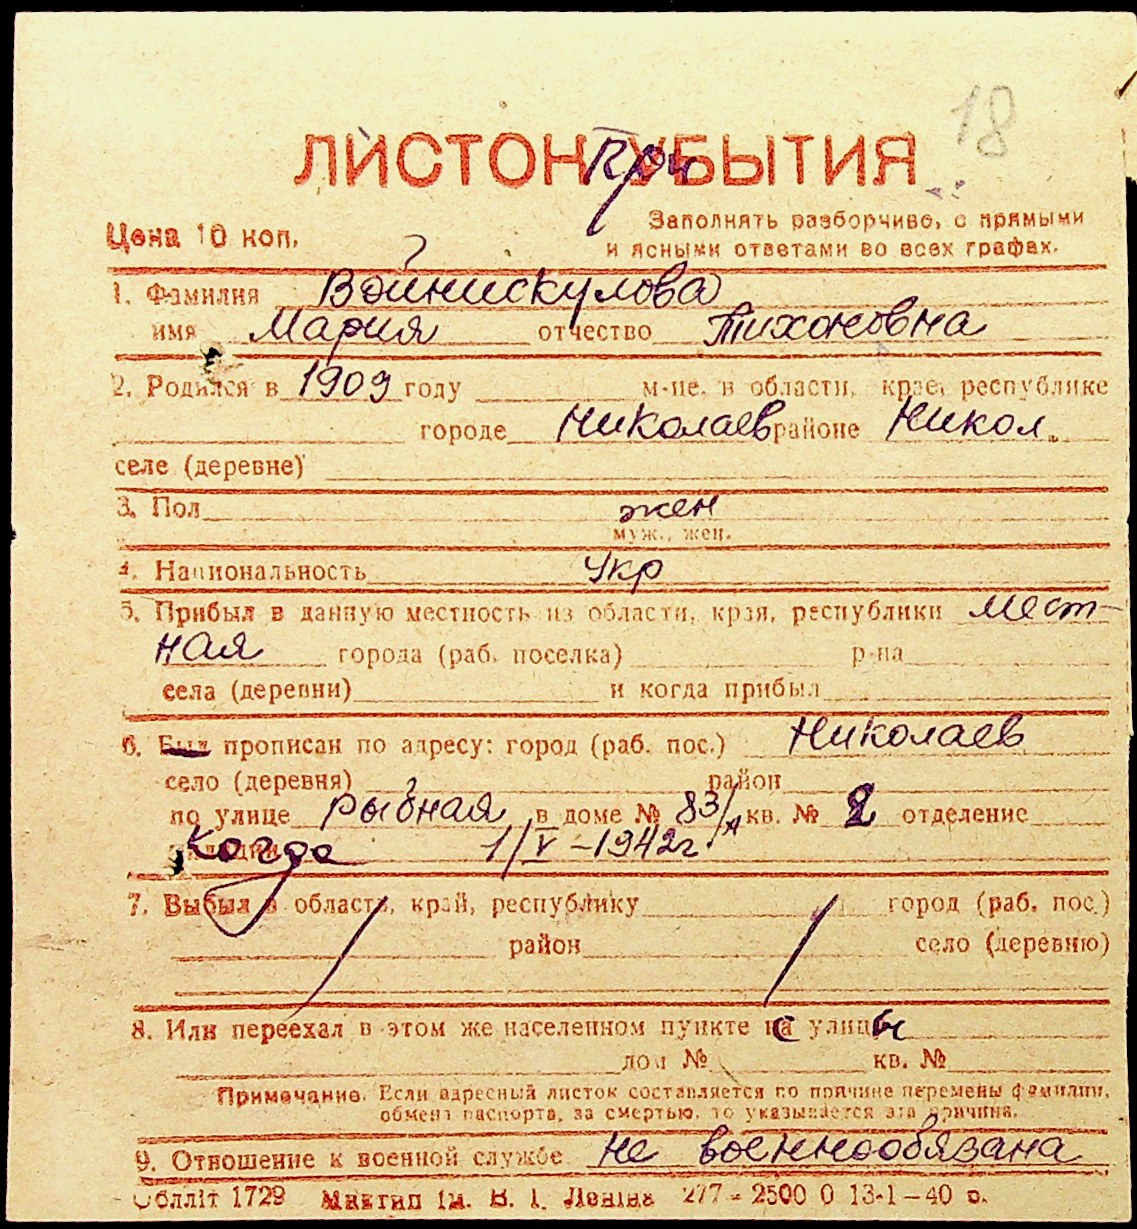 18
ЛИСТОК При УБЫТИЯ
Цена 10 коп.
Заполнять разборчиво, с прямыми
и ясными ответами во всех графах.
1. Фамилия Войнискулова
имя Мария отчество Тихоновна
2. Родился в 1909 году м-це, в области, крае, республике
городе Николаев районе Никол.
селе (деревне)
3. Пол жен
муж., жен.
4. Национальность Укр
5. Прибыл в данную местность из области, края, республики мест-
ная города (раб. поселка) р-на
села (деревни) и когда прибыл
6. Был прописан по адресу: город (раб. пос.) Николаев
село (деревня) район
по улице Рыбная в доме № 83/А кв. № 2 отделение
Когда 1/V-1942 г.
7. Выбыл в область, край, республику город (раб. пос.)
район село (деревню)
8. Или переехал в этом же населенном пункте с улицы
дом № кв. №
Примечание. Если адресный листок составляется по причине перемены фамилии,
обмена паспорта, за смертью, то указывается эта причина.
9. Отношение к военной службе не военнообязана
Облліт 1729 Миктип ім. В. І. Леніна 277 - 2500 0 13-1-40 р.